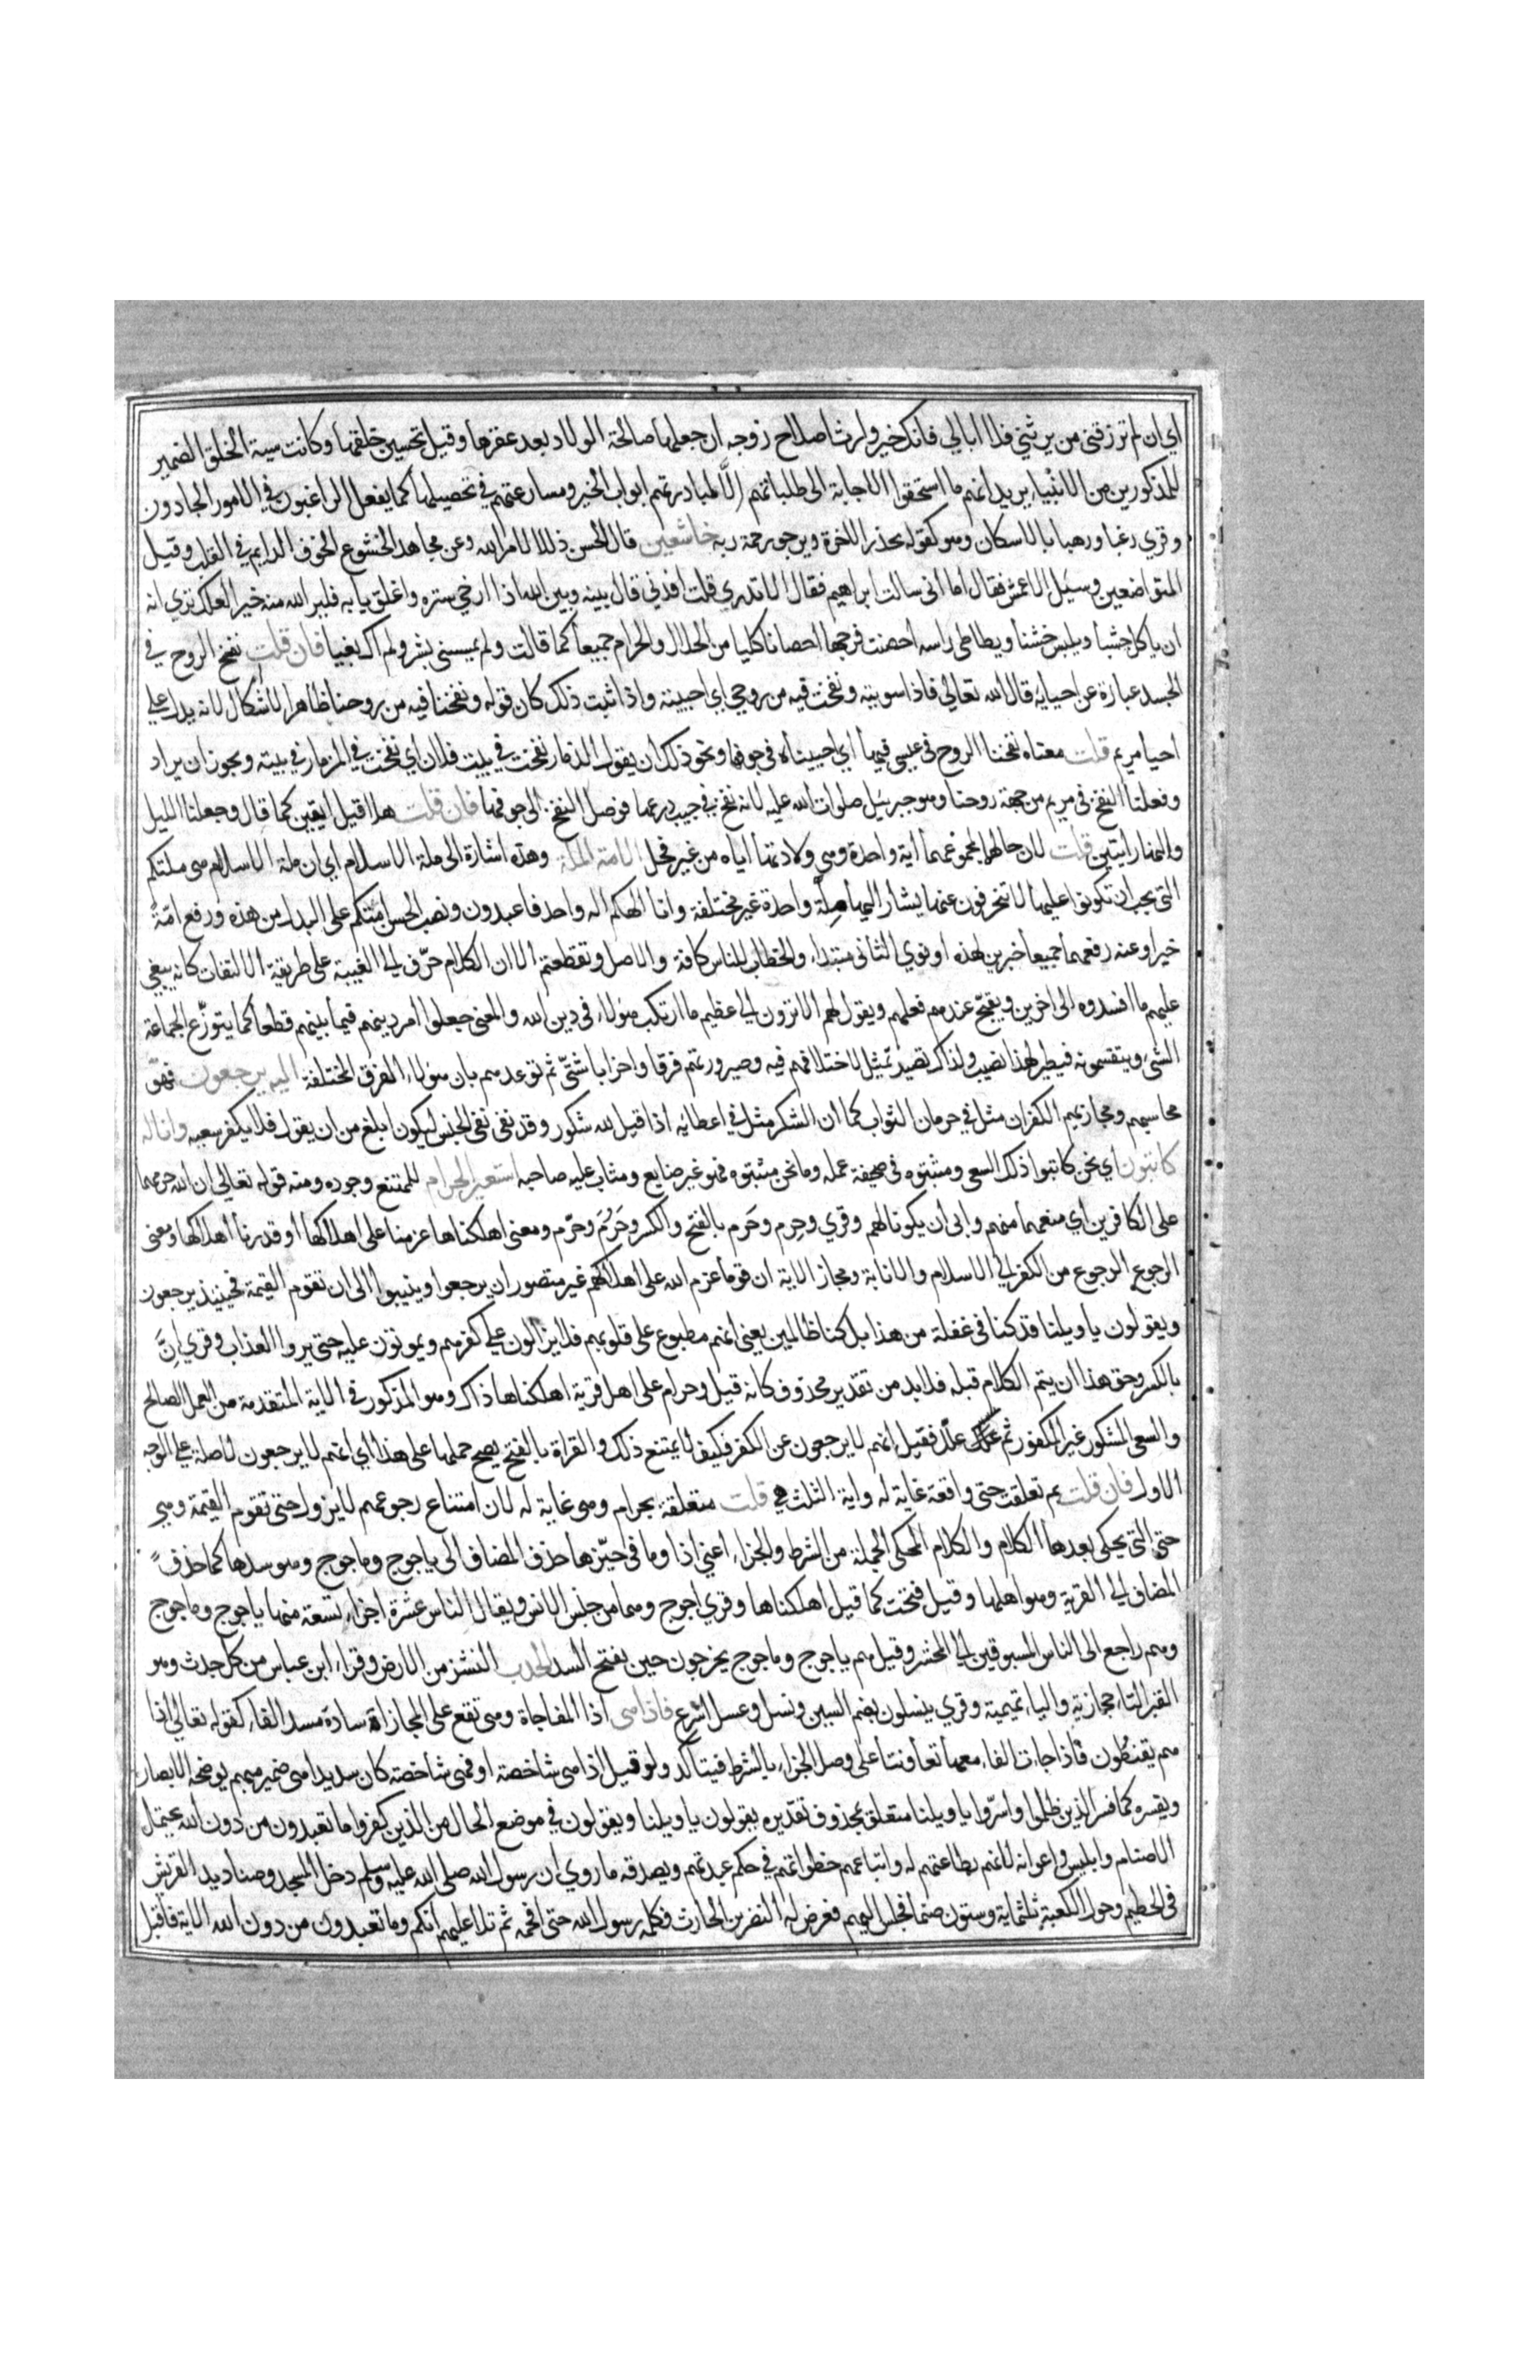 اي ان لم ترزقني من يرثني فلا ابالي فانك خير وارث اصلاح زوجه ان جعلها صالحة الولاد بعد عقرها وقيل تحسين خلقها وكانت سية الخلق الضمير
للمذكورين من الانبياء يريد انهم ما استحقوا الاجابة الى طلباتهم الا لمبادرتهم ابواب الخير ومسارعتهم في تحصيلها كما يفعل الراغبون في الامور الجادون
وقري رغبا ورهبا بالاسكان وهو كقوله يحذر الاخرة ويرجو رحمة ربه خاشعين قال الحسن ذللا لامر الله وعن مجاهد الخشوع الخوف الدايم في القلب وقيل
المتواضعين وسئل الاعمش فقال اما اني سالت ابراهيم فقال الا تدري قلت افدني قال بينه وبين الله اذا ارخي ستره واغلق بابه فلير الله منه خيرا لعلك تري انه
ان ياكل جشبا ويلبس خشنا ويطاطي راسه احصنت فرجها احصانا كليا من الحلال والحرام جميعا كما قالت ولم يمسسني بشر ولم اك بغيا فان قلت نفخ الروح في
الجسد عبارة عن احيايه قال الله تعالي فاذا سويته ونفخت فيه من روحي اي احييته واذا ثبت ذلك كان قوله ونفخنا فيه من روحنا ظاهر الاشكال لانه يدل علي
احيا مريم قلت معناه نفخنا الروح في عيسي فيها اي احييناه في جوفها ونحو ذلك ان يقول الزمار نفخت في بيت فلان اي نفخت في المزمار في بيته ويجوز ان يراد
وفعلنا النفخ في مريم من جهة روحنا وهو جبرئيل صلوات الله عليه لانه نفخ في جيب درعها فوصل النفخ الى جوفها فان قلت هلا قيل ايتين كما قال وجعلنا الليل
والنهار ايتين قلت لان حالهما بمجموعهما اية واحدة وهي ولادتها اياه من غير فحل الامة الملة وهذه اشارة الى ملة الاسلام اي ان ملة الاسلام هي ملتكم
التي يجب ان تكونوا عليها لا تنحرفون عنها يشار اليها ملة واحدة غير مختلفة وانا الهكم اله واحد فاعبدون ونصب الحسن امتكم على البدل من هذه ورفع امة
خبرا وعنه رفعهما جميعا خبرين لهذه او نوي للثاني مبتداء والخطاب للناس كافة والاصل وتقطعتم الا ان الكلام حرف الي الغيبة على طريقة الالتفات كانه ينعي
عليهم ما افسدوه الى اخرين ويقبح عندهم فعلهم ويقول لهم الا ترون الي عظيم ما ارتكب هولاء في دين الله والمعنى جعلوا امر دينهم فيما بينهم قطعا كما يتوزع الجماعة
الشئ ويتقسمونه فيطير لهذا نصيب ولذاك نصيب تمثيل لاختلافهم فيه وصيرورتهم فرقا واحزابا شتى ثم توعدهم بان هولاء الفرق المختلفة اليه يرجعون فهو
محاسبهم ومجازيهم الكفران مثل في حرمان الثواب كما ان الشكر مثل في اعطايه اذا قيل لله شكور وقد نفى نفي الجنس ليكون ابلغ من ان يقول فلا يكفر سعيه وانا له
كاتبون اي نحن كاتبوا ذلك السعي ومثبتوه في صحيفة عمله وما نحن مثبتوه فهو غير ضايع ومثاب عليه صاحبه استعير الحرام للممتنع وجوده ومنه قوله تعالي ان الله حرمهما
على الكافرين اي منعهما منهم وابى ان يكونا لهم وقري وحرم وحرم بالفتح والكسر وحرم وحرم ومعنى اهلكناها عزمنا على اهلاكها او قدرنا اهلاكها ومعنى
الرجوع الرجوع من الكفر الي الاسلام والانابة ومجاز الاية ان قوما عزم الله على اهلاكهم غير متصور ان يرجعوا وينيبوا الى ان تقوم القيمة فحينيذ يرجعون
ويقولون يا ويلنا قد كنا في غفلة من هذا بل كنا ظالمين يعني انهم مطبوع على قلوبهم فلا يزالون علي كفرهم ويموتون عليه حتى يروا العذاب وقري ان
بالكسر وحق هذا ان يتم الكلام قبله فلا بد من تقدير محذوف كانه قيل وحرام على اهل قرية اهلكناها ذاك وهو المذكور في الاية المتقدمة من العمل الصالح
والسعي المشكور غير المكفور ثم علل فقيل انهم لا يرجعون عن الكفر فكيف لا يمتنع ذلك والقراة بالفتح يصح حملها على هذا اي انهم لا يرجعون لاصلة علي الوجه
الاول فان قلت بم تعلقت حتى واقعة غاية له واية الثلث هي قلت متعلقة بحرام وهي غاية له لان امتناع رجوعهم لا يزول حتى تقوم القيمة وهي
حتى التي يحكى بعدها الكلام والكلام المحكي الجملة من الشرط والجزاء اعني اذا وما في حيزها حذف المضاف الى ياجوج وماجوج وهو سدها كما حذف
المضاف الي القرية وهو اهلها وقيل فتحت كما قيل اهلكناها وقري اجوج وهما من جنس الانس ويقال الناس عشرة اجزاء تسعة منها ياجوج وماجوج
وهم راجع الى الناس المسوقين الي المحشر وقيل هم ياجوج وماجوج يخرجون حين يفتح السد الحدب النشز من الارض وقراء ابن عباس من كل جدث وهو
القبر الثا حجازية والفا تميمية وقري ينسلون بضم السين ونسل وعسل اسرع فاذا هي اذا المفاجاة وهي تقع على المجازاة سادة مسد الفاء كقوله تعالي اذا
هم يقنطون فاذا جاءت الفاء معها تعاونتا على وصل الجزاء بالشرط فيتاكد ولو قيل اذا هي شاخصة او فهي شاخصة كان سديدا هي ضمير مبهم يوضحه الابصار
ويفسره كما فسر الذين ظلموا واسروا يا ويلنا متعلق بمحذوف تقديره يقولون يا ويلنا ويقولون في موضع الحال من الذين كفروا ما تعبدون من دون الله يحتمل
الاصنام وابليس واعوانه لانهم بطاعتهم له واتباعهم خطواتهم في حكم عبدتهم ويصدقه ما روي ان رسول الله صلى الله عليه وسلم دخل المسجد وصناديد القريش
في الحطيم وحول الكعبة ثلثماية وستون صنما فجلس اليهم فعرض له النضر بن الحارث فكلمه رسول الله حتى افحمه ثم تلا عليهم انكم وما تعبدون من دون الله الاية فاقبل